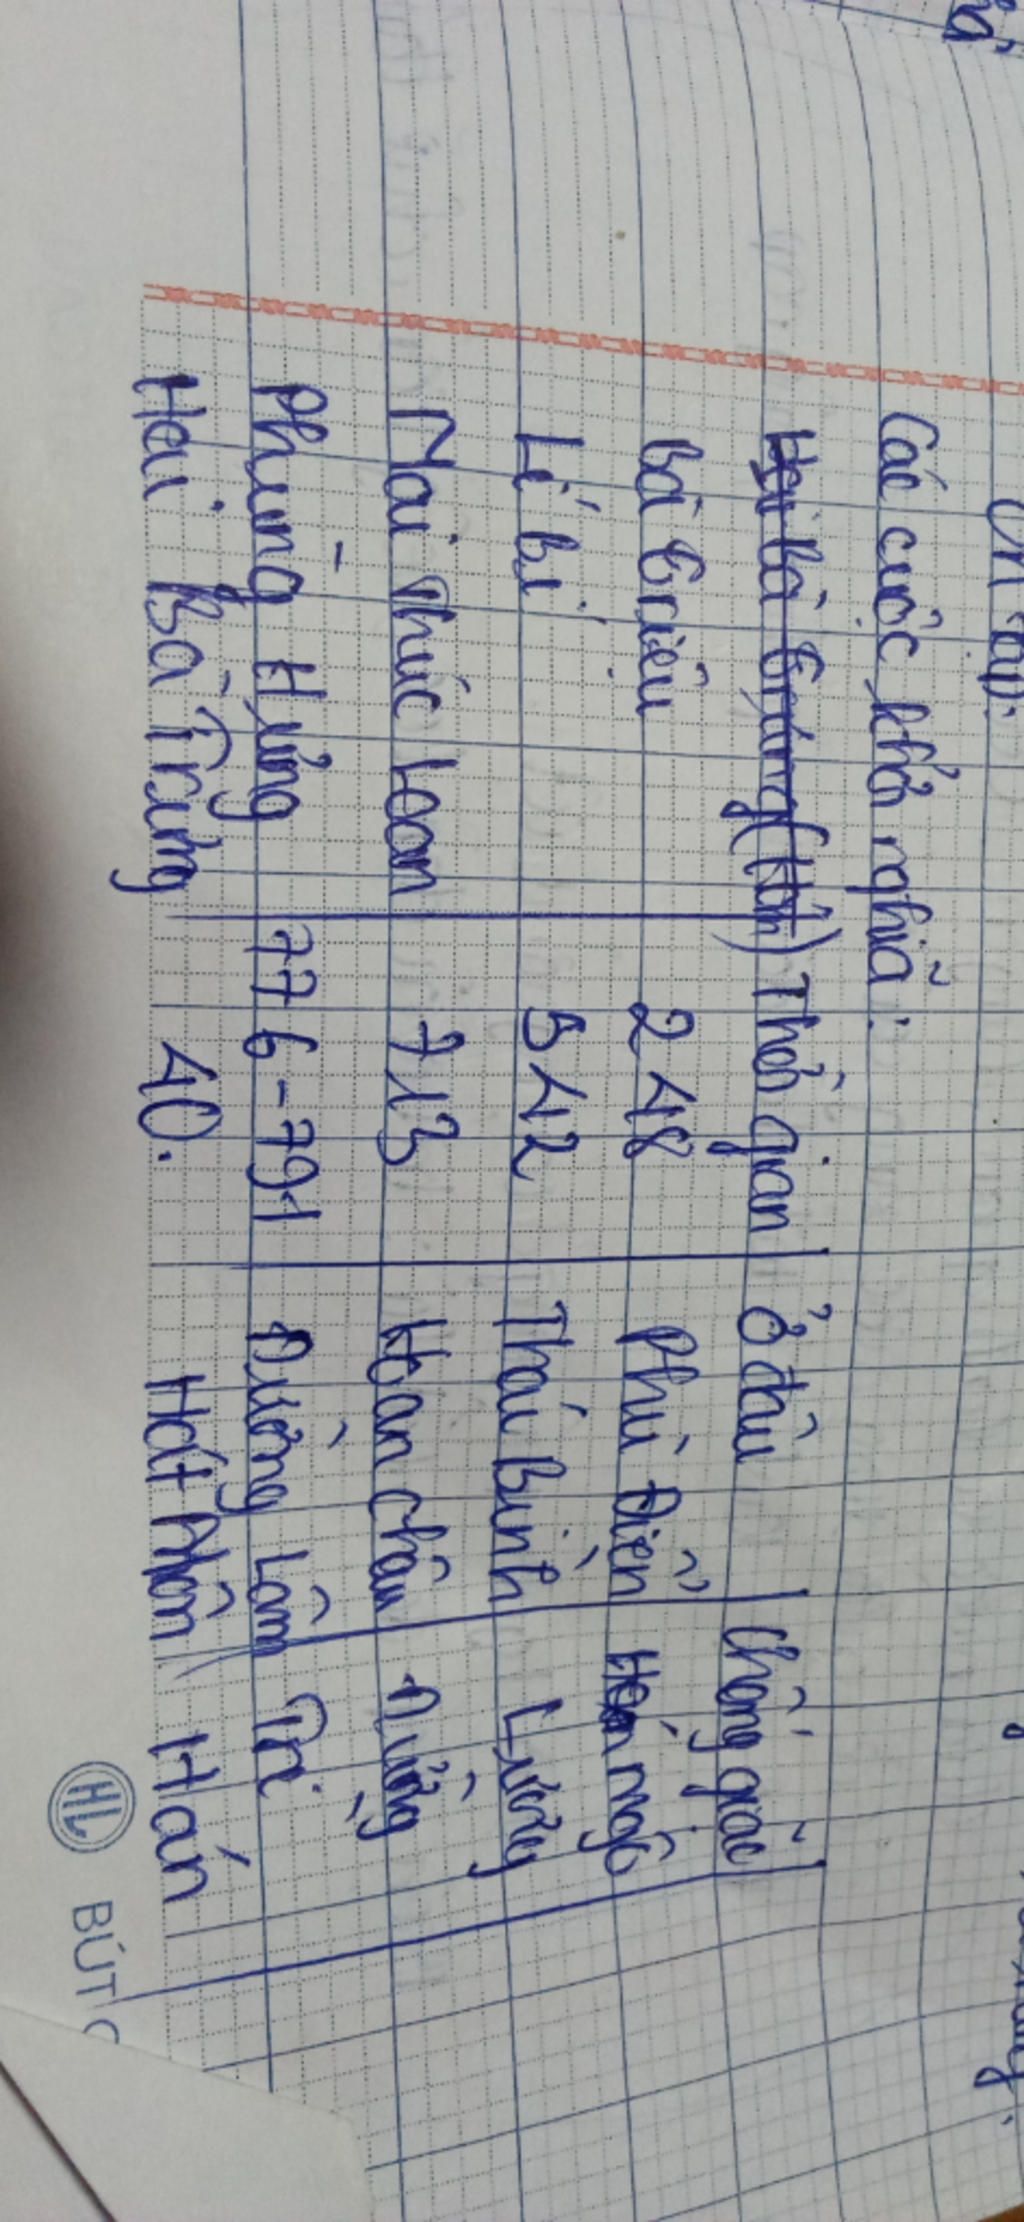 Ôn tập.
Các cuộc khởi nghĩa:
Hai Bà Trưng (Hán) Thời gian Ở đâu Chống giặc
Bà Triệu 248 Phú Điền ngô
Lí Bí 542 Thái Bình Lương
Mai Thúc Loan 713 Hoan Châu Đường
Phùng Hưng 776-791 Đường Lâm Trì
Hai Bà Trưng 40. Hát Môn Hán
HL BÚT